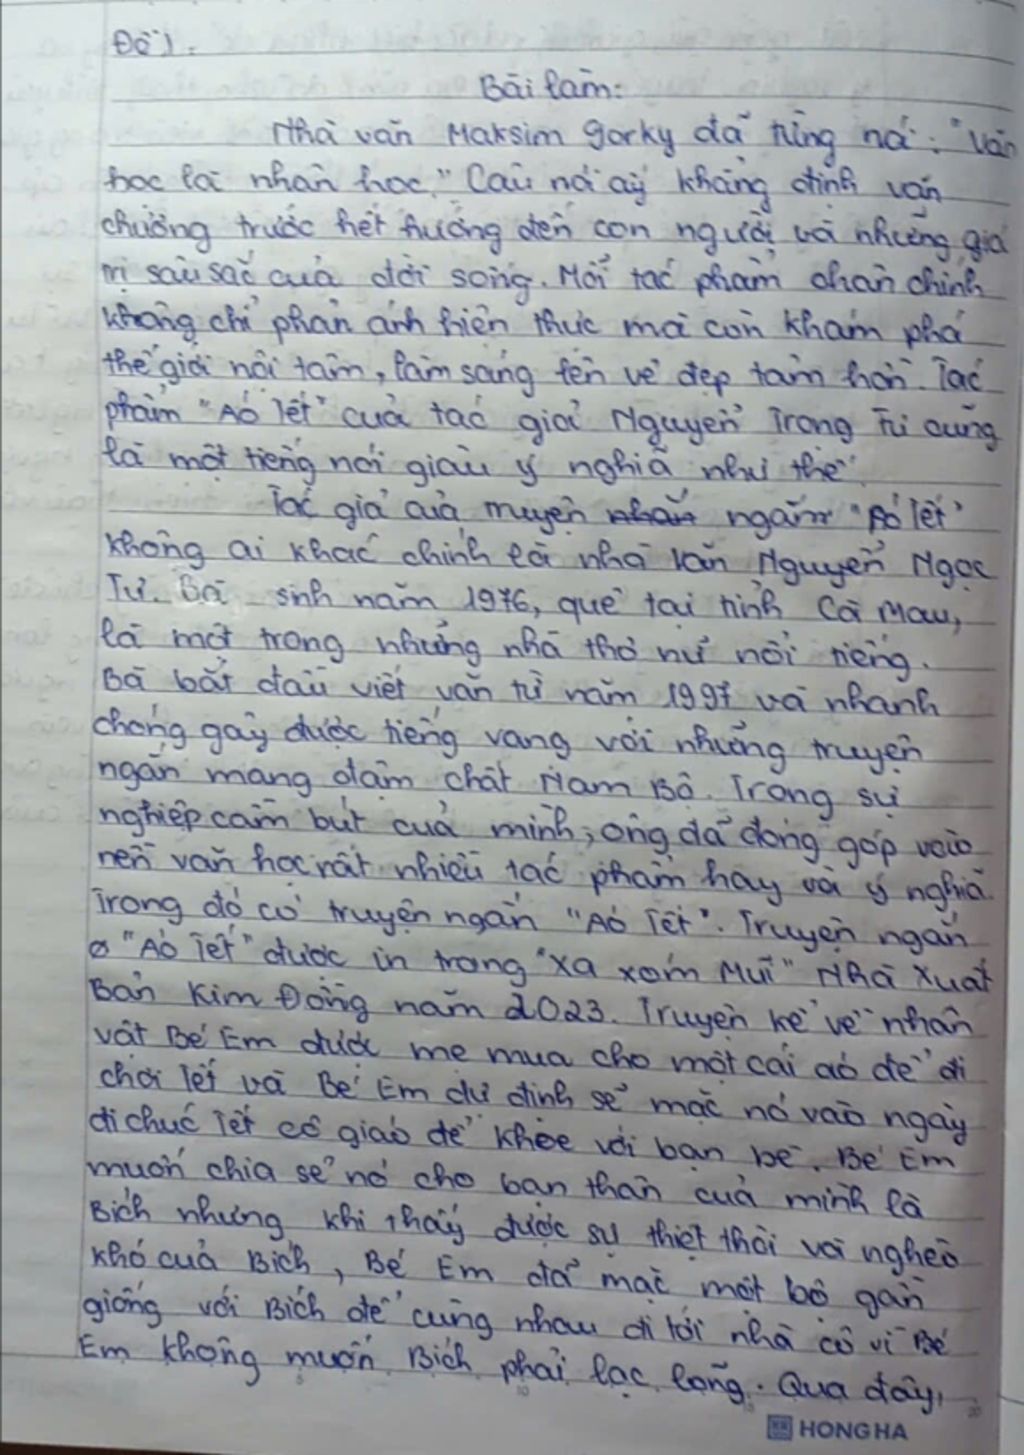 Đề 1.
Bài làm:
Nhà văn Maksim Gorky đã từng nói: "Văn
học là nhân học." Câu nói ấy khẳng định văn
chương trước hết hướng đến con người và những giá
trị sâu sắc của đời sống. Mỗi tác phẩm chân chính
không chỉ phản ánh hiện thực mà còn khám phá
thế giới nội tâm, làm sáng lên vẻ đẹp tâm hồn. Tác
phẩm "Áo Tết" của tác giả Nguyễn Trong Tư cũng
là một tiếng nói giàu ý nghĩa như thế.
Tác giả của truyện nhắn ngắn "Áo Tết"
không ai khác chính là nhà văn Nguyễn Ngọc
Tư. Bà sinh năm 1976, quê tại tỉnh Cà Mau,
là một trong những nhà thơ nữ nổi tiếng.
Bà bắt đầu viết văn từ năm 1997 và nhanh
chóng gây được tiếng vang với những truyện
ngắn mang đậm chất Nam Bộ. Trong sự
nghiệp cầm bút của mình, ông đã đóng góp vào
nền văn học rất nhiều tác phẩm hay và ý nghĩa.
Trong đó có truyện ngắn "Áo Tết". Truyện ngắn
"Áo Tết" được in trong "Xa xóm Mũi" Nhà Xuất
Bản Kim Đồng năm 2023. Truyện kể về nhân
vật Bé Em được mẹ mua cho một cái áo để đi
chơi Tết và Bé Em dự định sẽ mặc nó vào ngày
đi chúc Tết cô giáo để khoe với bạn bè. Bé Em
muốn chia sẻ nó cho bạn thân của mình là
Bích nhưng khi thấy được sự thiệt thòi và nghèo
khó của Bích, Bé Em đã mặc một bộ gần
giống với Bích để cùng nhau đi tới nhà cô vì Bé
Em không muốn Bích phải lạc lõng. Qua đây,
HONG HA